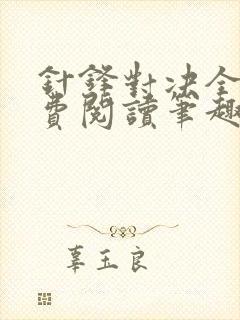 針鋒對決全
費閱讀筆趣
辜玉良